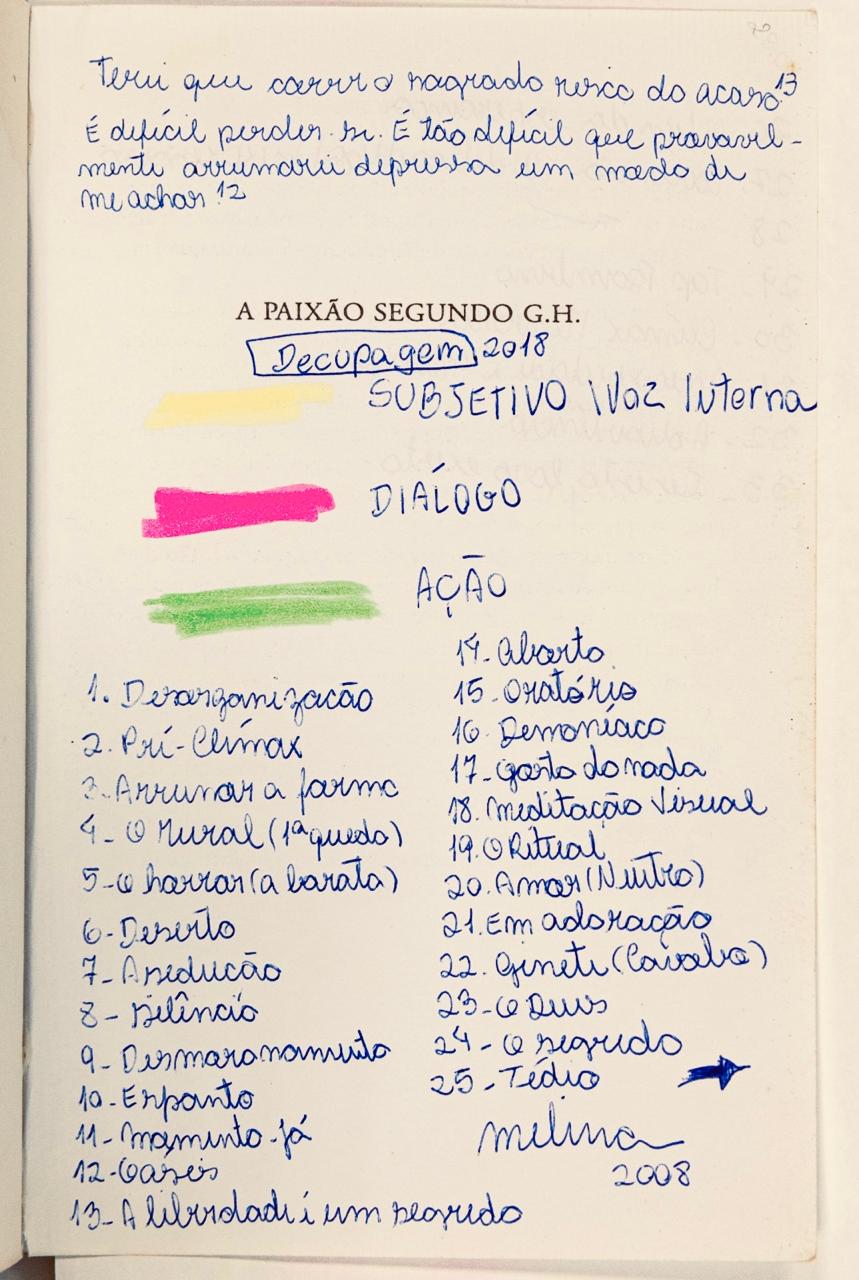 Terei que correr o sagrado risco do acaso 13
É difícil perder-se. É tão difícil que provavel-
mente arrumarei depressa um modo de
me achar. 12
A PAIXÃO SEGUNDO G.H.
Decupagem 2018
SUBJETIVO \ Voz Interna
DIÁLOGO
AÇÃO
1. Desorganização
2. Pré-Clímax
3. Arrumar a forma
4- O Mural (1ª queda)
5- O horror (a barata)
6- Deserto
7- A sedução
8- Silêncio
9- Desmoronamento
10- Espanto
11- Momento-já
12- Oásis
13- A liberdade é um segredo
14- Aborto
15- Oratório
16- Demoníaco
17- Gosto do nada
18. Meditação Visual
19. O Ritual
20. Amor (Neutro)
21. Em adoração
22. Ginete (Cavalo)
23- O Deus
24- O segredo
25- Tédio
melina
2008